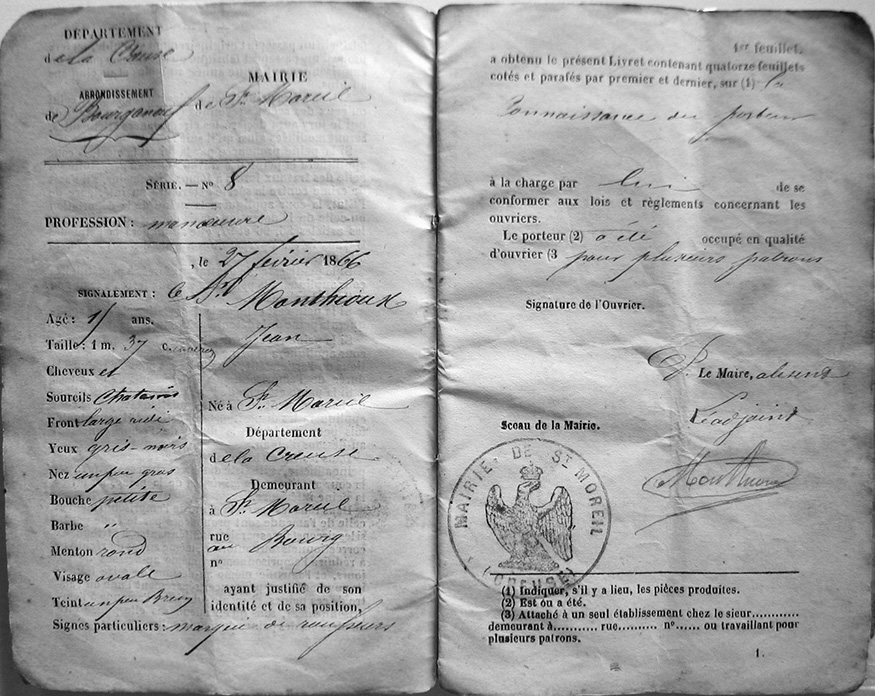 DÉPARTEMENT
de la Creuse
ARRONDISSEMENT
de Bourganeuf
MAIRIE
de St. Mareil
SÉRIE. — No 8
PROFESSION : manoeuvre
, le 27 février 1866
SIGNALEMENT : le Sr. Monthioux
Jean
Age : ans.
Taille : 1 m. 37 c.
Cheveux et
Sourcils Chatains
Front large ridé
Yeux gris-noirs
Nez un peu gros
Bouche petite
Barbe "
Menton rond
Visage ovale
Teint un peu
Signes particuliers : marqué de rousseurs
Né à St. Mareil
Département
de la Creuse
Demeurant
à St. Mareil
rue au Bourg
no
ayant justifié de son
identité et de sa position,
1er feuillet.
a obtenu le présent Livret contenant quatorze feuillets
cotés et parafés par premier et dernier, sur (1) la
Connaissance du porteur
à la charge par lui de se
conformer aux lois et règlements concernant les
ouvriers.
Le porteur (2) a été occupé en qualité
d'ouvrier (3 pour plusieurs patrons
Signature de l'Ouvrier.
P. Le Maire, absent
L'adjoint
Sceau de la Mairie.
MAIRIE DE ST MOREIL
(CREUSE)
(1) Indiquer, s'il y a lieu, les pièces produites.
(2) Est ou a été.
(3) Attaché à un seul établissement chez le sieur............
demeurant à.......... rue.......... no...... ou travaillant pour
plusieurs patrons.
1.